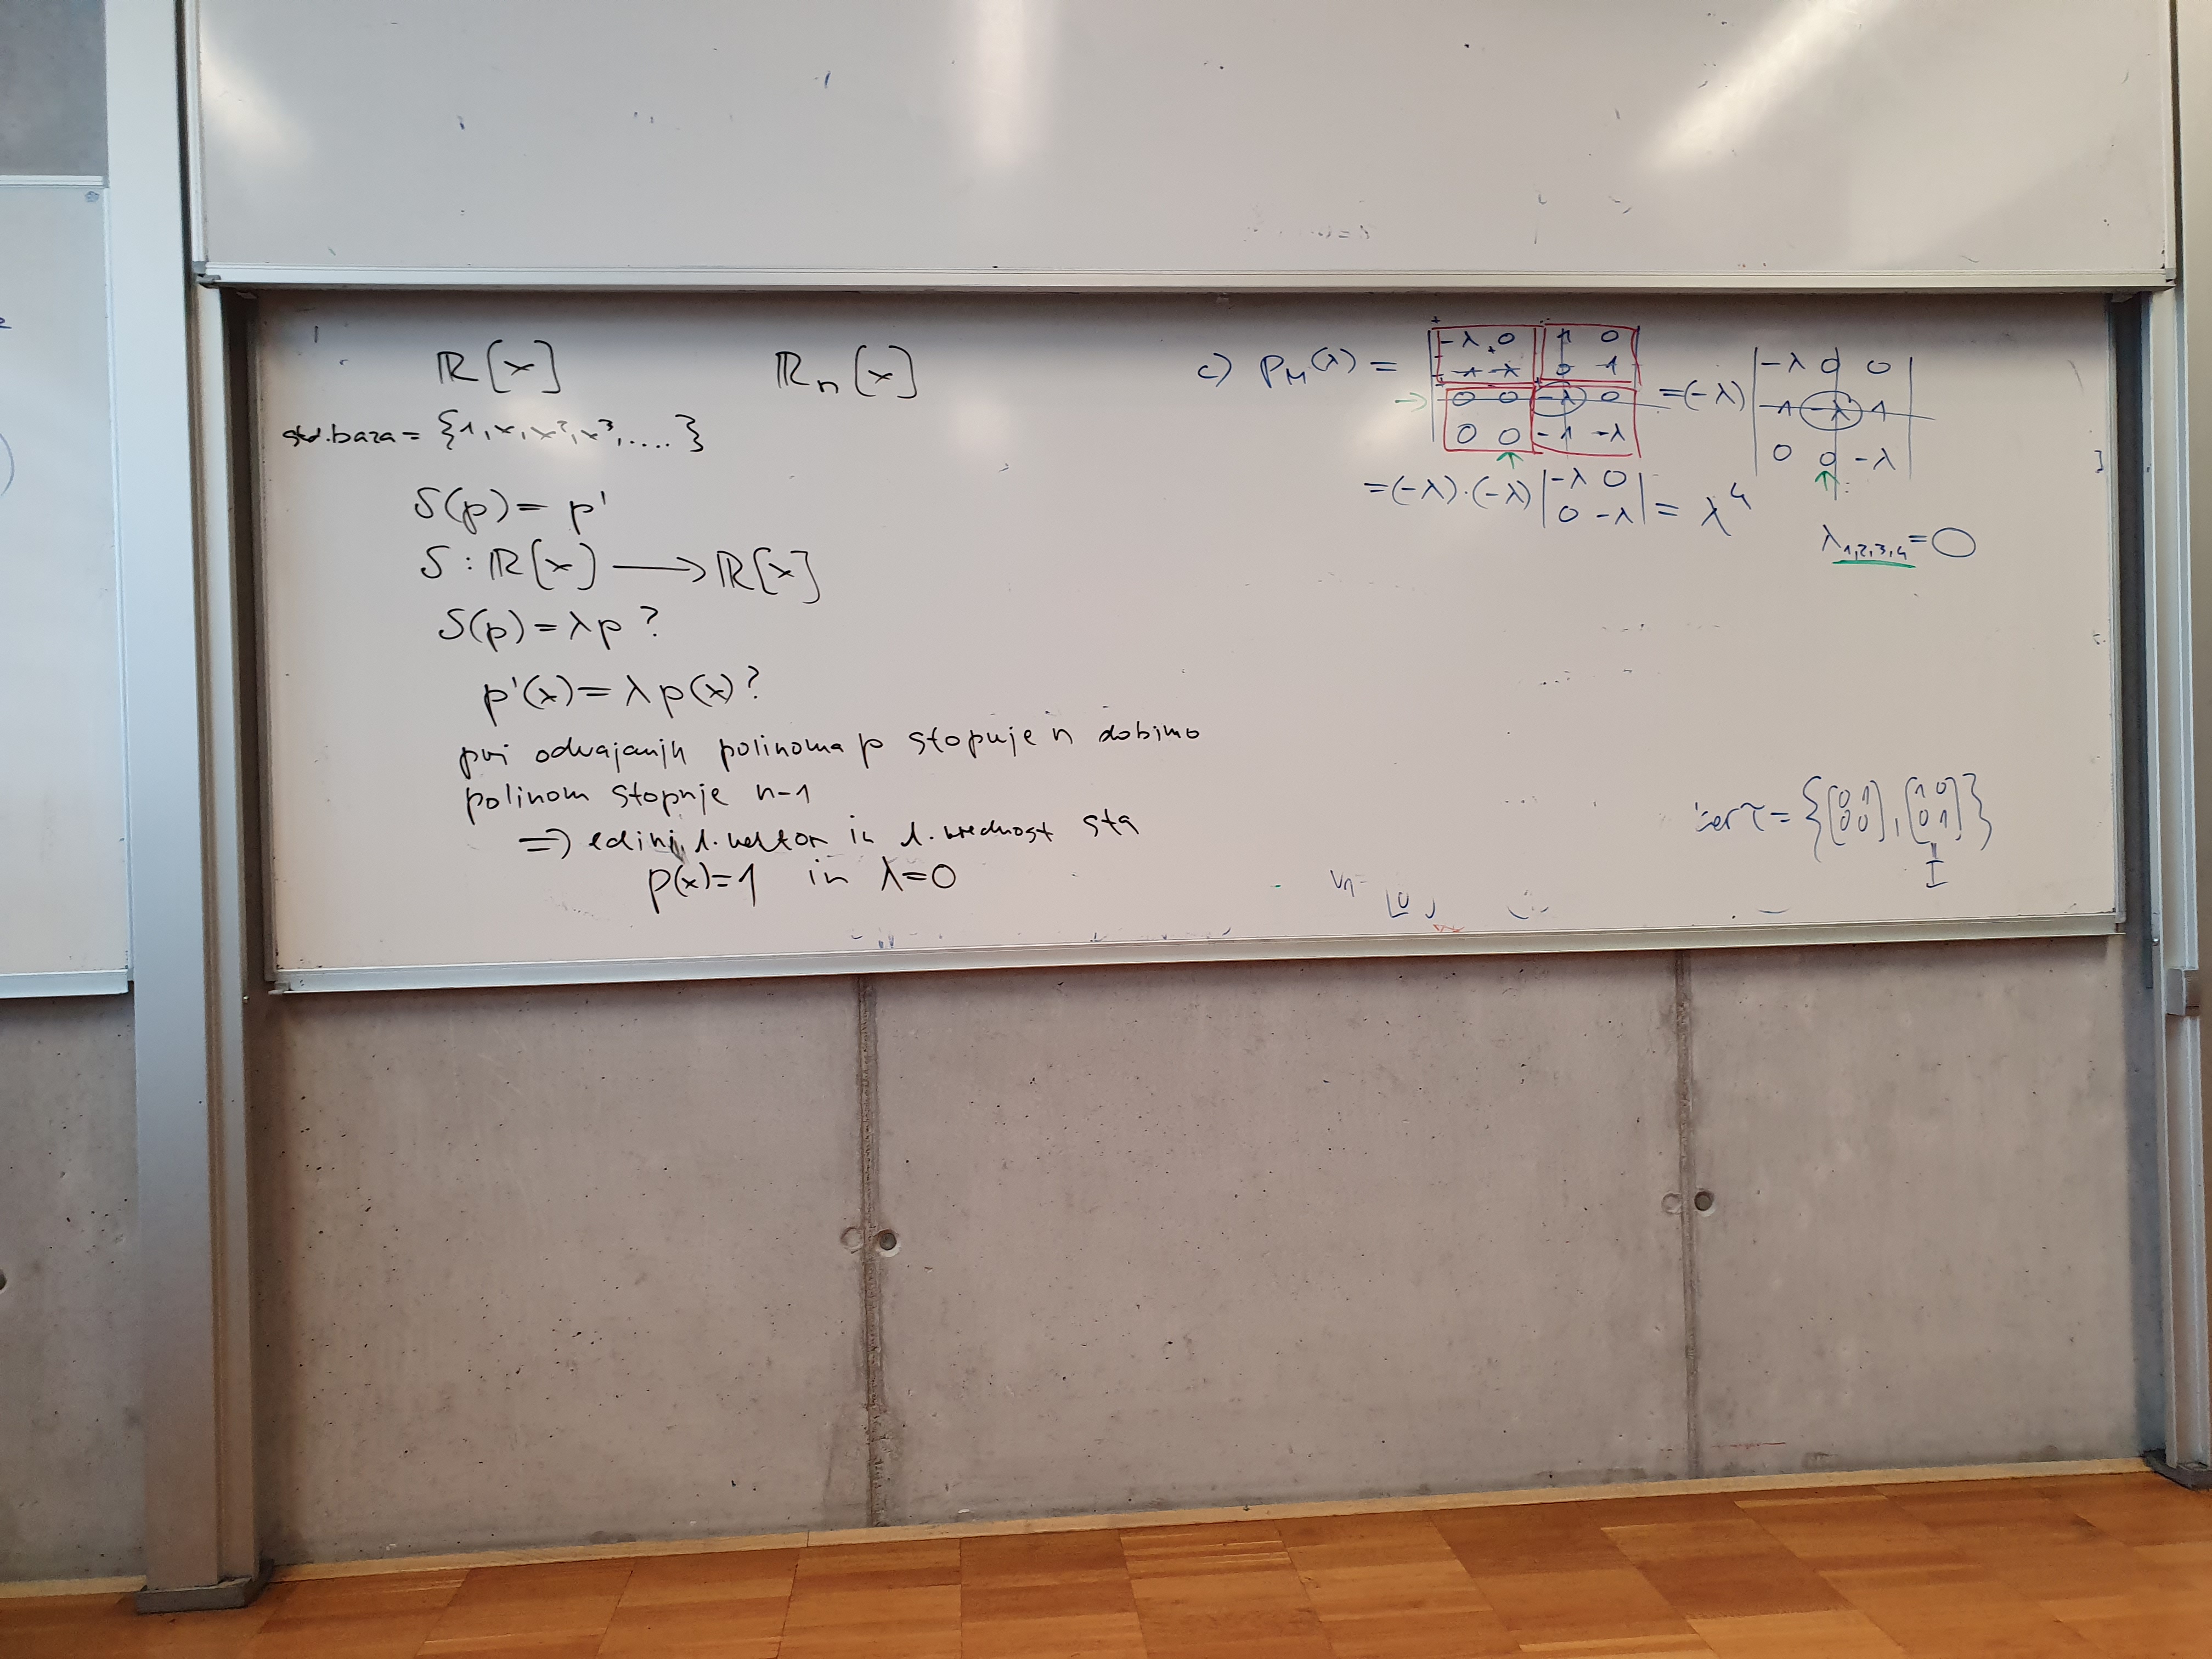 ℝ[x]    ℝₙ[x]
std.baza = {1, x, x², x³, ....}
S(p) = p'
S : ℝ[x] ⟶ ℝ[x]
S(p) = λp ?
p'(x) = λ p(x) ?
pri odvajanju polinoma p stopnje n dobimo
polinom stopnje n-1
=> edini l. vektor in l. vrednost sta
p(x)=1 in λ=0
c) P_M(λ) = | -λ 0 1 0 ; -1 -λ 0 1 ; 0 0 -λ 0 ; 0 0 -1 -λ | = (-λ) | -λ 0 0 ; -1 -λ 1 ; 0 0 -λ |
= (-λ)·(-λ) | -λ 0 ; 0 -λ | = λ⁴
λ₁,₂,₃,₄ = 0
ker τ = {[0 1 ; 0 0], [1 0 ; 0 1]}
I
v₁=